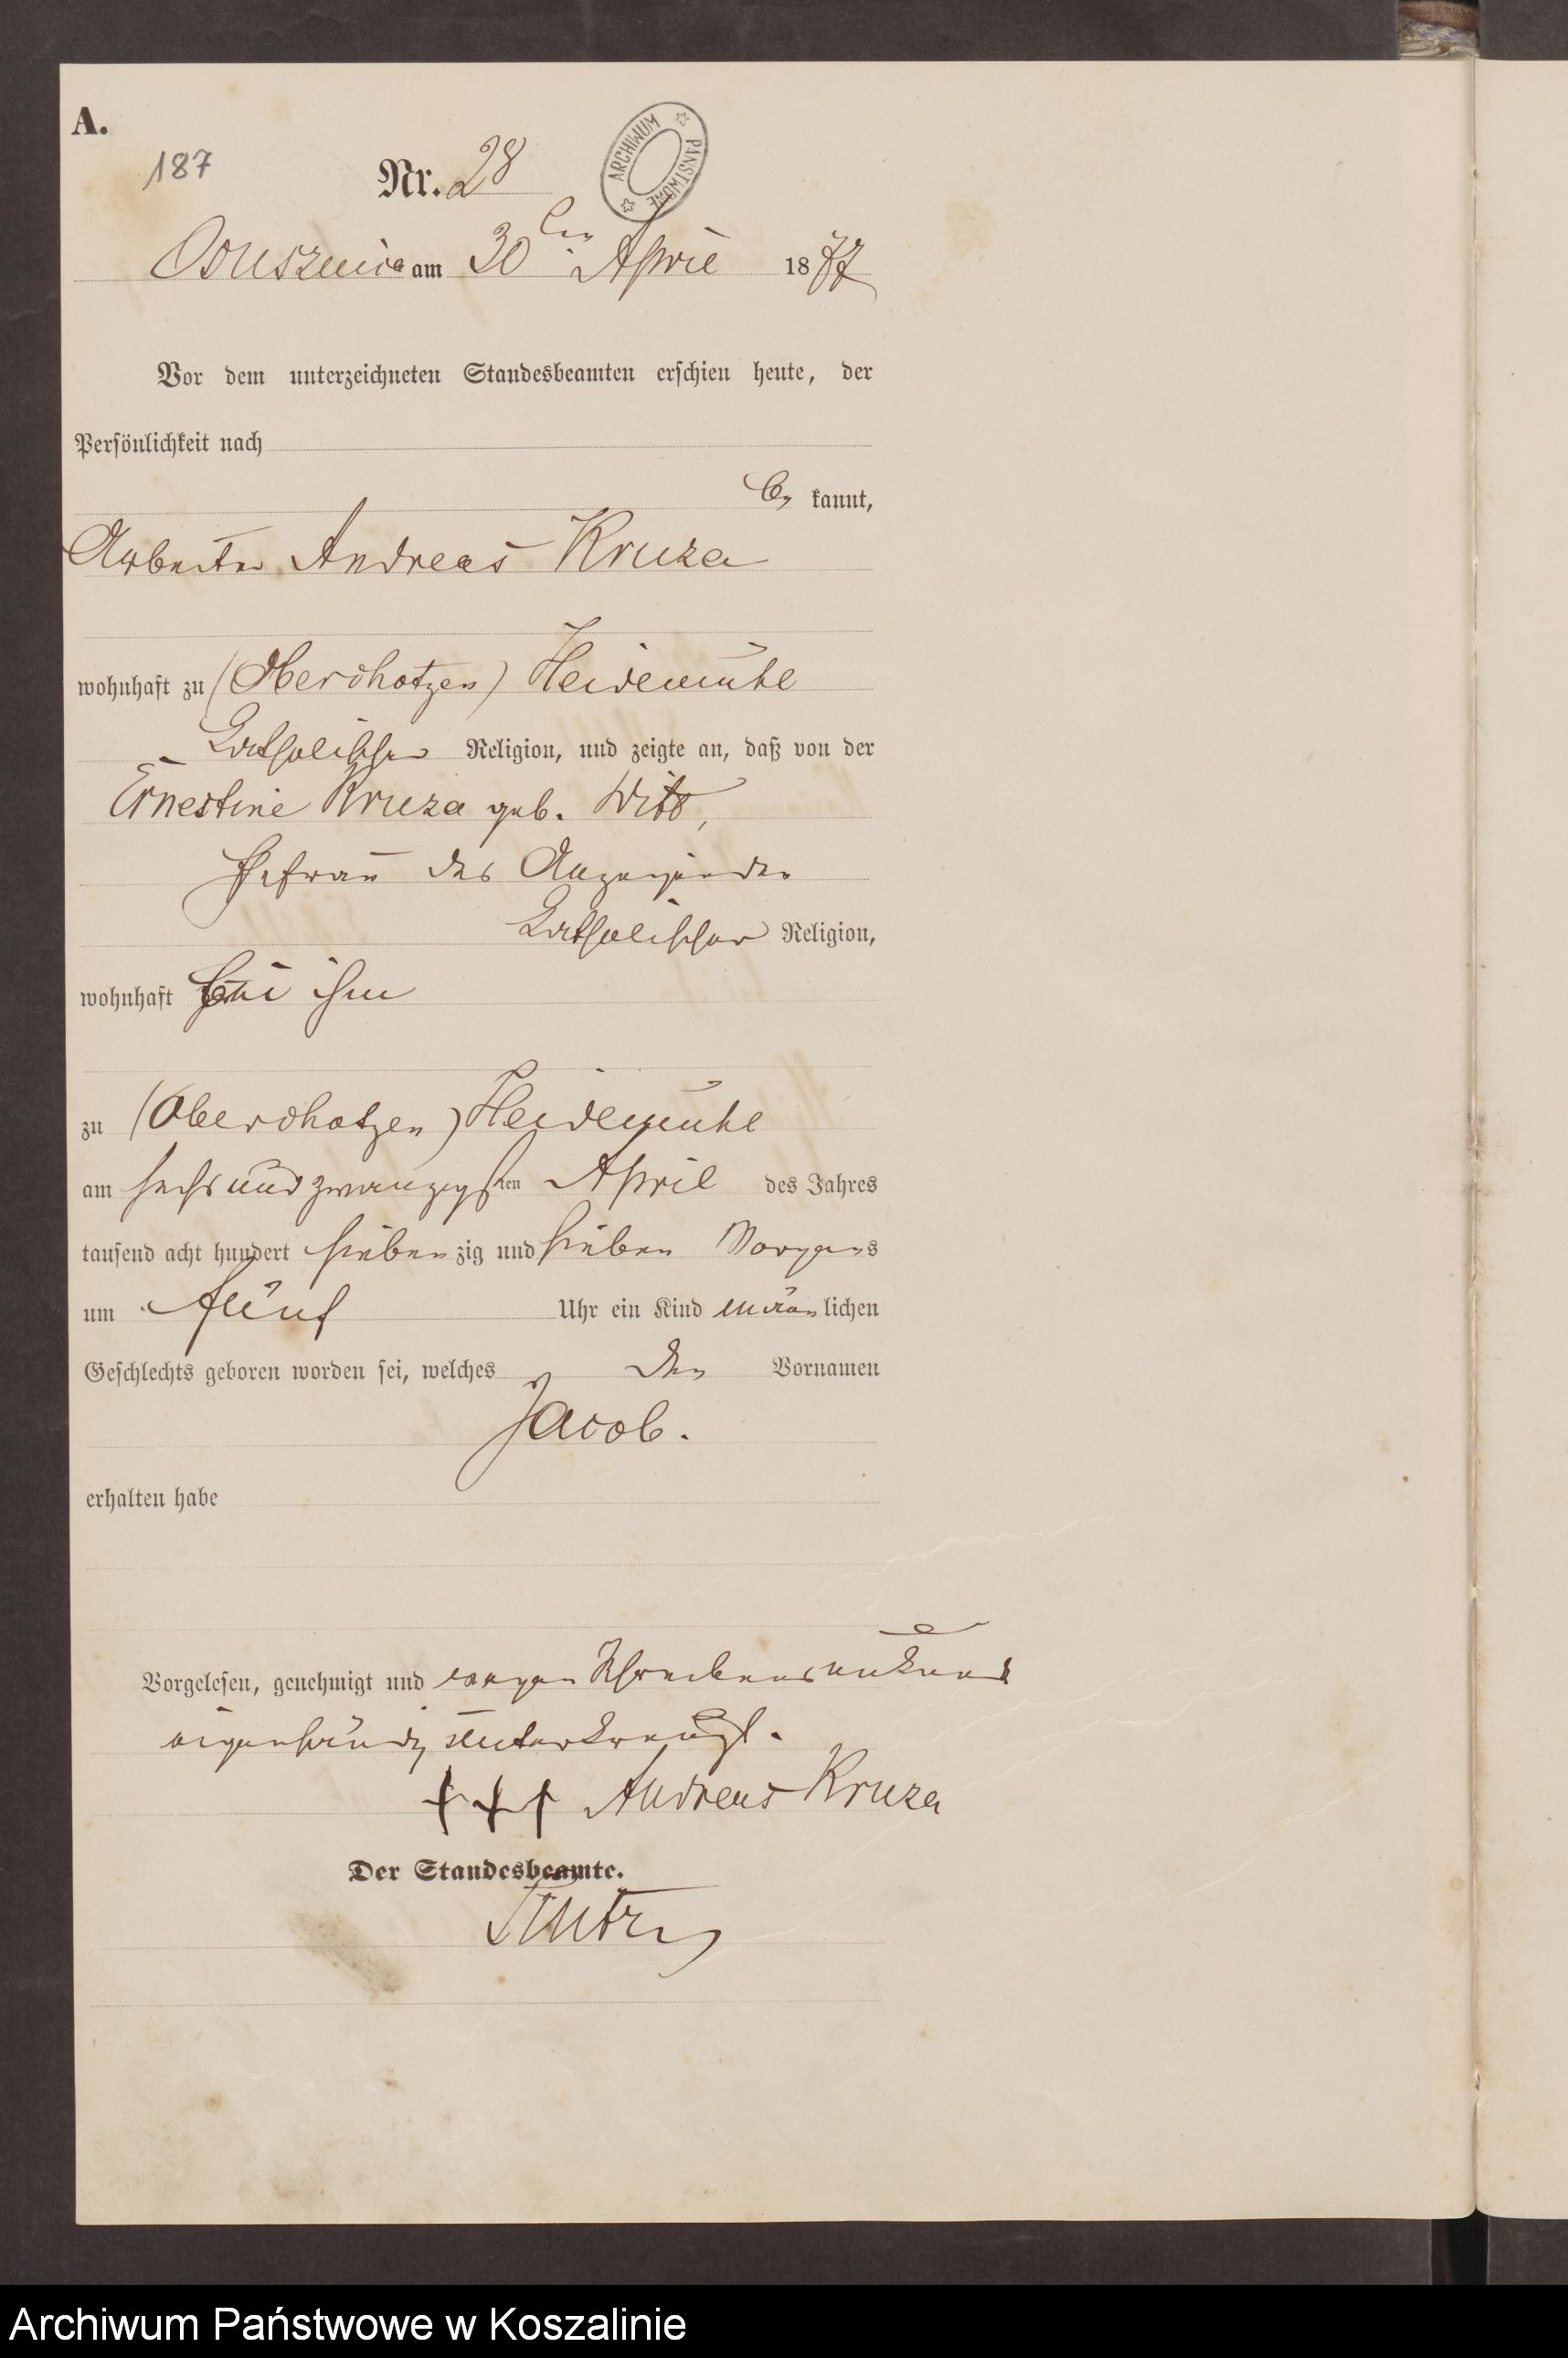 A.
187
Nr. 28
ARCHIWUM PAŃSTWOWE
Ossusznica am 30ten April 1877
Vor dem unterzeichneten Standesbeamten erschien heute, der
Persönlichkeit nach
be kannt,
Arbeiter Andreas Kruza
wohnhaft zu (Oberdhotzen) Heidemühl
katholischer Religion, und zeigte an, daß von der
Ernestine Kruza geb. Witt,
Ehefrau des Anzeigenden
katholischer Religion,
wohnhaft bei ihm
zu (Oberdhotzen) Heidemühl
am sechs und zwanzigsten April des Jahres
tausend acht hundert sieben zig und sieben Morgens
um fünf Uhr ein Kind männ lichen
Geschlechts geboren worden sei, welches den Vornamen
Jacob.
erhalten habe
Vorgelesen, genehmigt und wegen Schreibensunkunde
eigenhändig unterkreuzt.
††† Andreas Kruza
Der Standesbeamte.
Archiwum Państwowe w Koszalinie